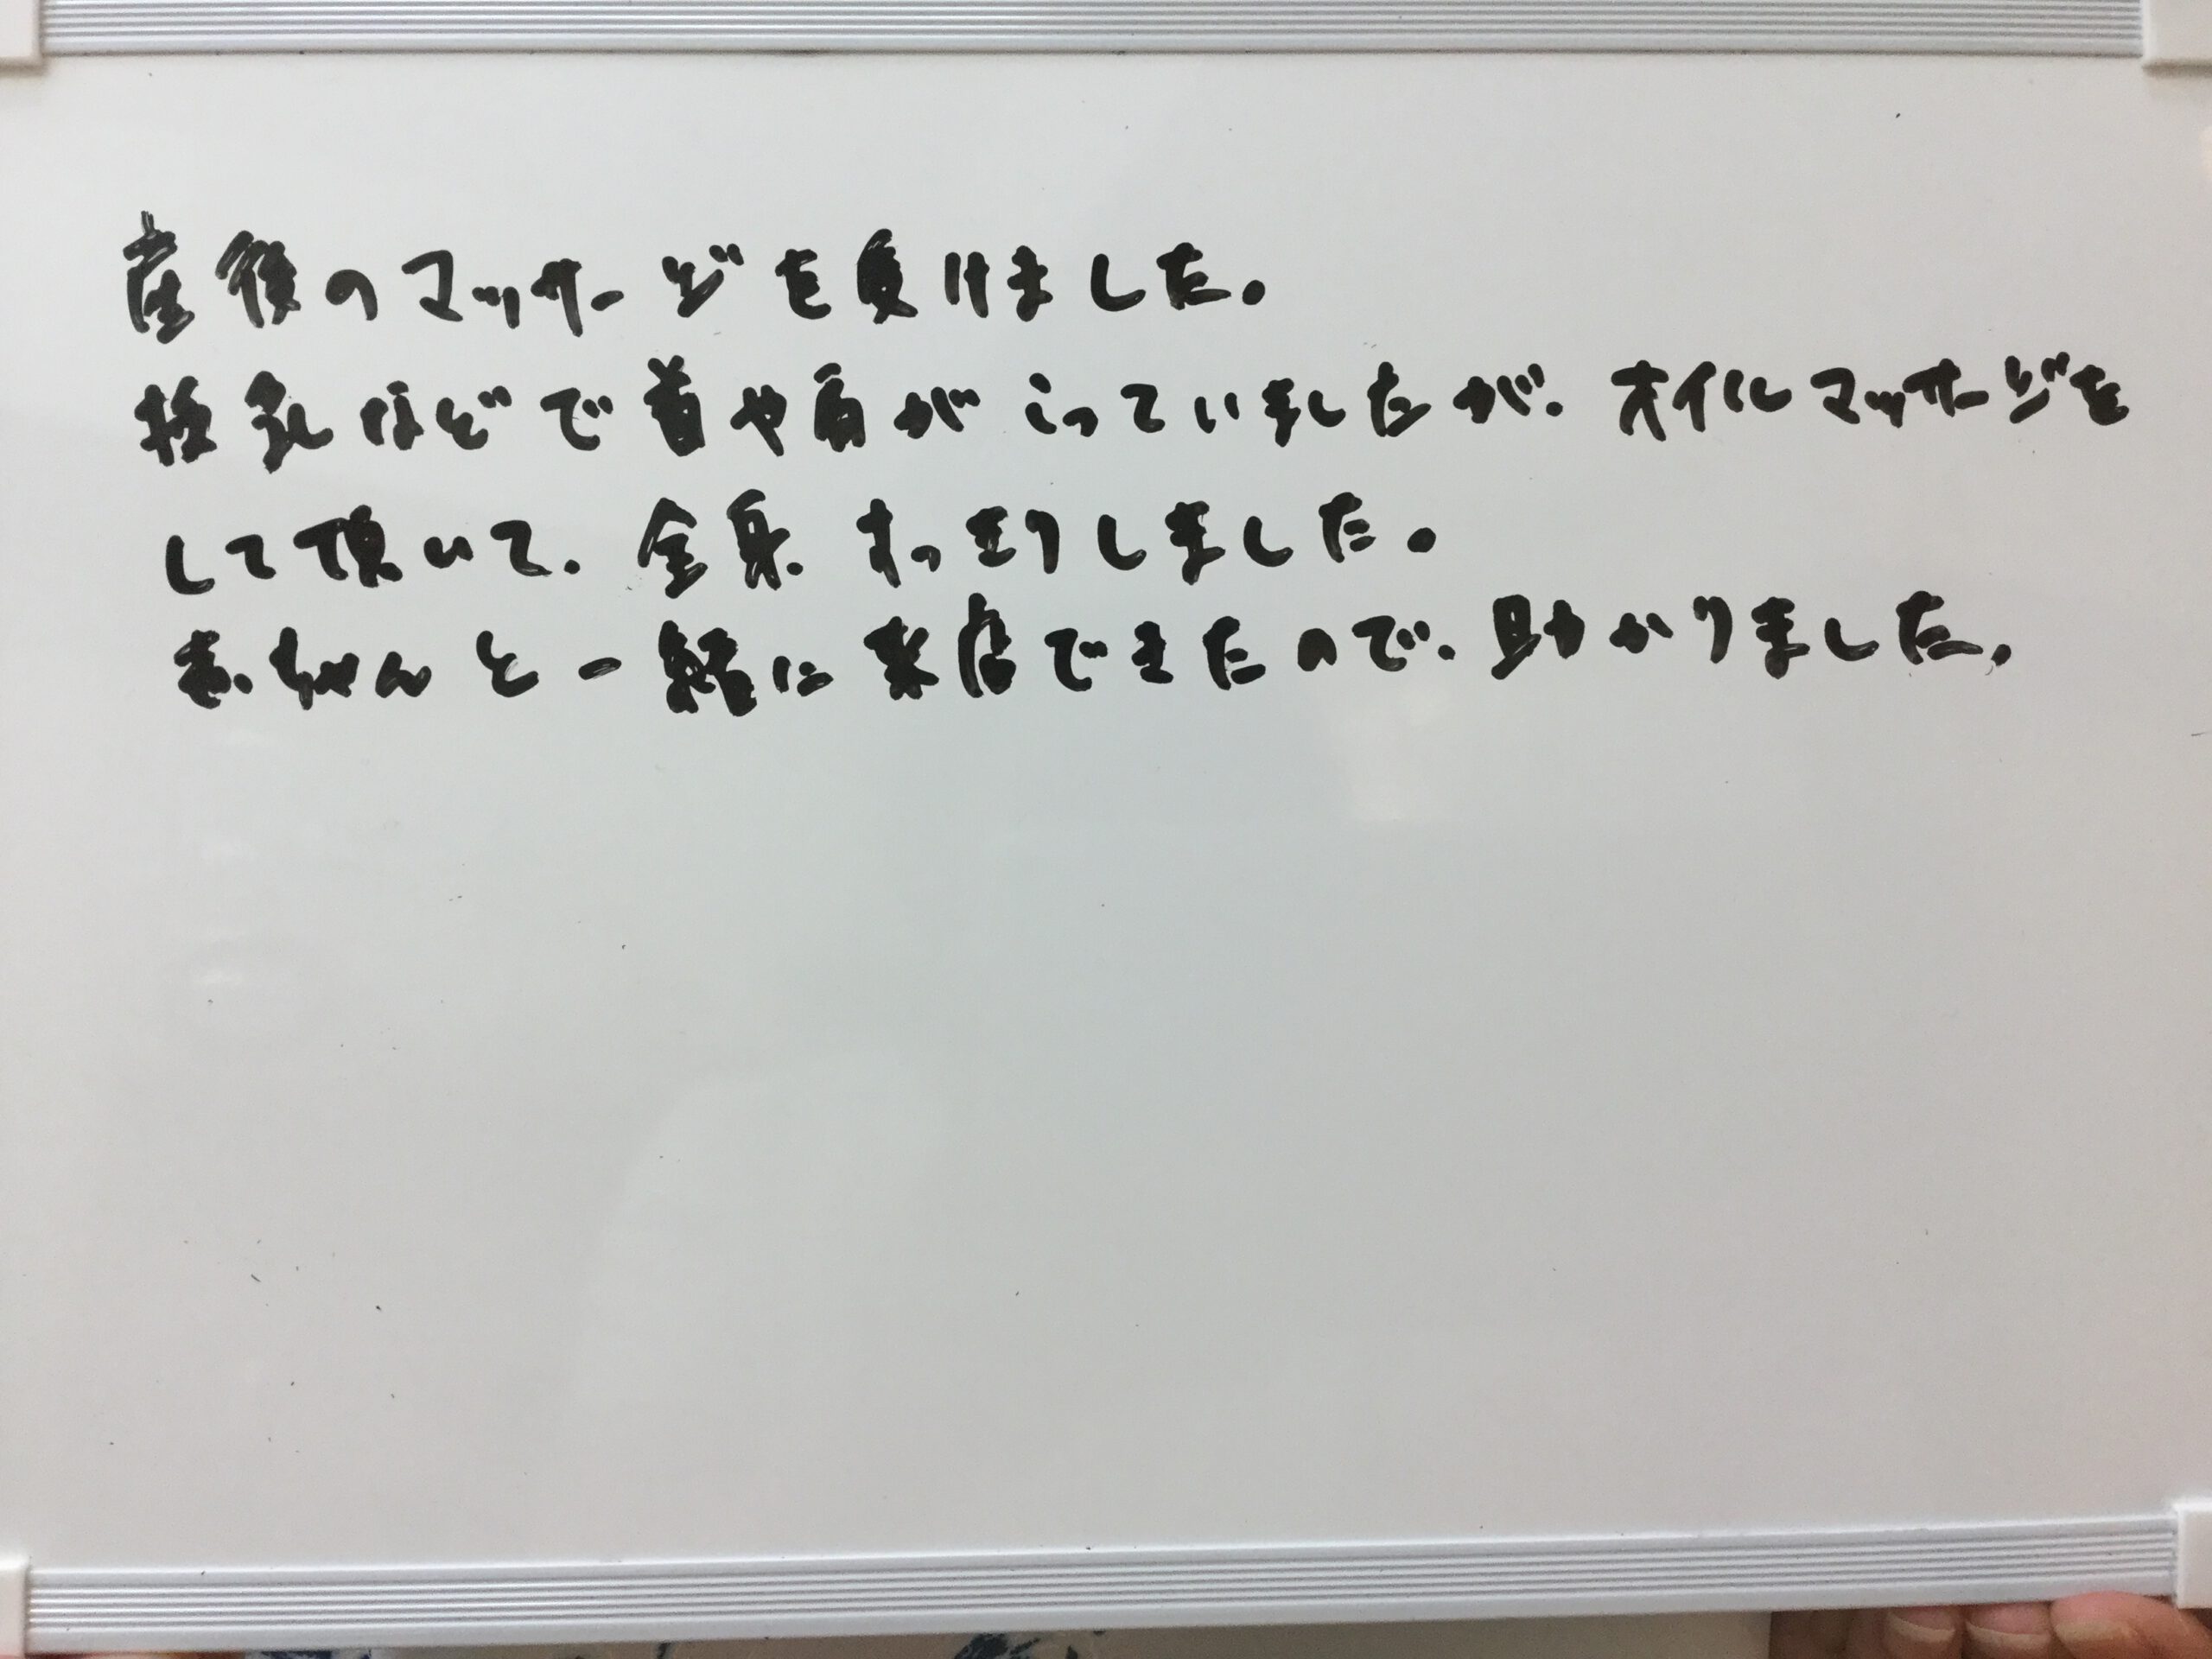 産後のマッサージを受けました。
授乳などで首や肩がこっていましたが、オイルマッサージを
して頂いて、全身すっきりしました。
赤ちゃんと一緒に来店できたので、助かりました。